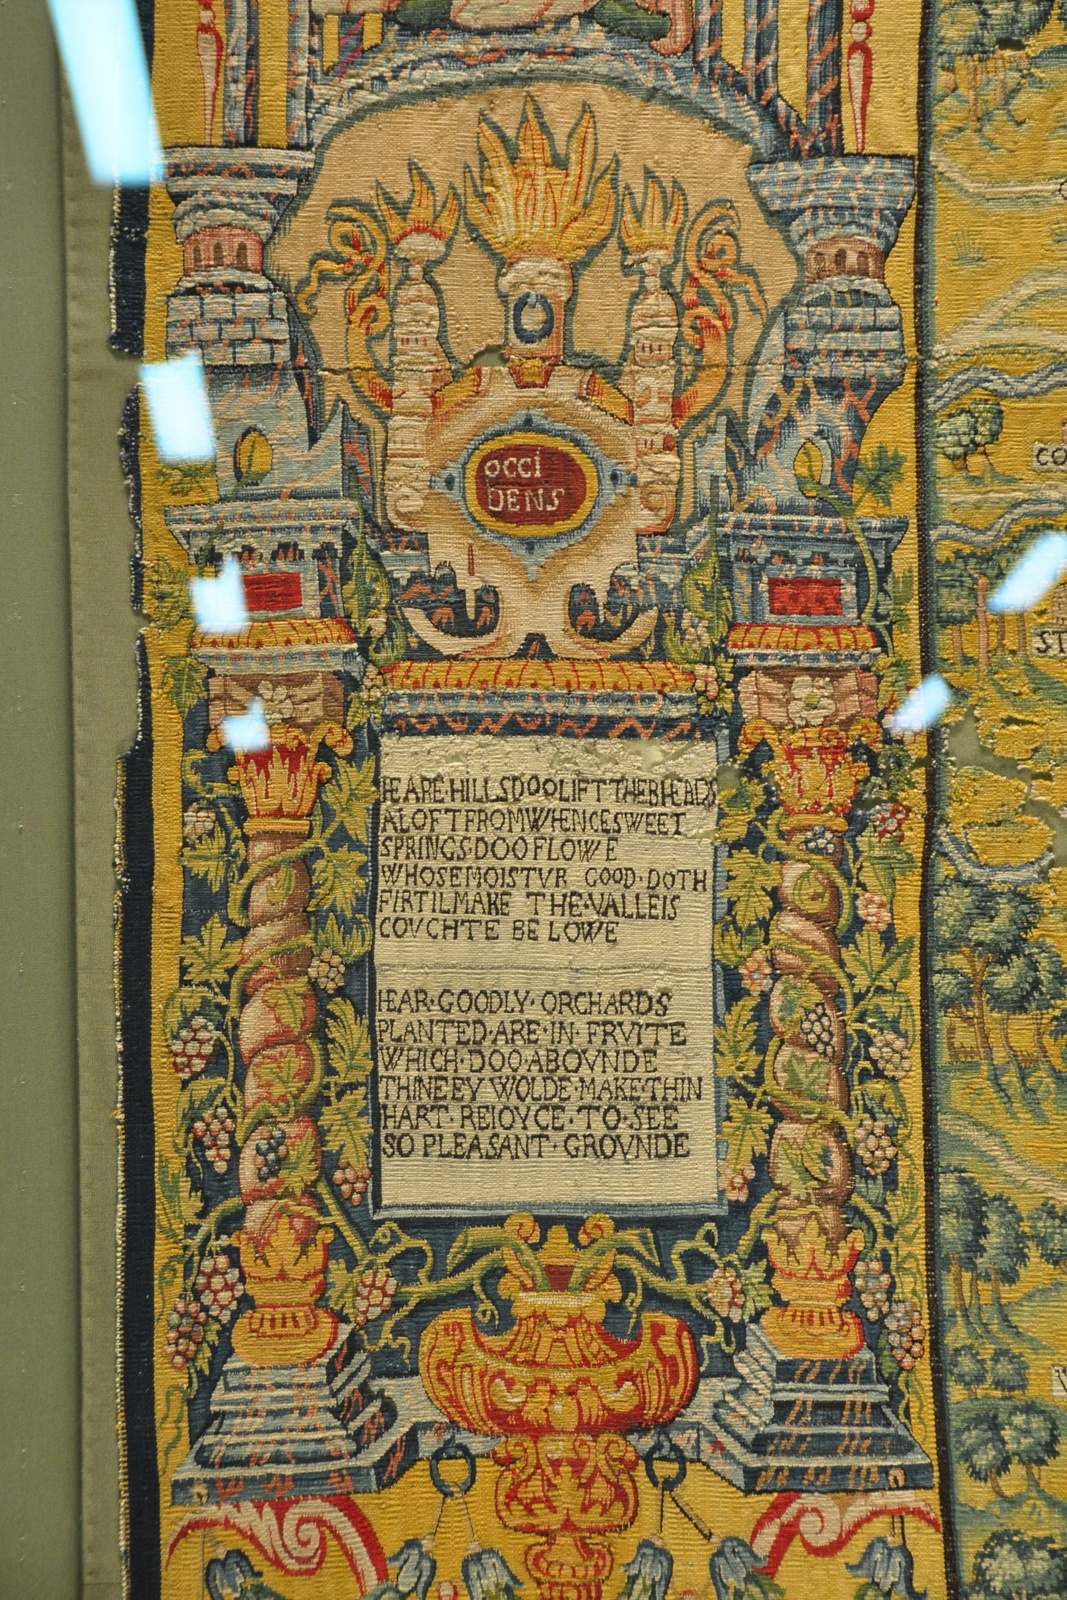 OCCI
DENS
HEARE·HILLS DOO LIFT THEB HEADS
ALOFT FROM WHENCE SWEET
SPRINGS·DOO FLOWE
WHOSE MOISTVR GOOD·DOTH
FIRTIL MAKE THE·VALLEIS
COVCHTE BE LOWE
HEAR·GOODLY·ORCHARDS
PLANTED·ARE·IN·FRVITE
WHICH·DOO·ABOVNDE
THINE EY WOLDE·MAKE·THIN
HART·REIOYCE·TO·SEE
SO PLEASANT·GROVNDE
CO
ST